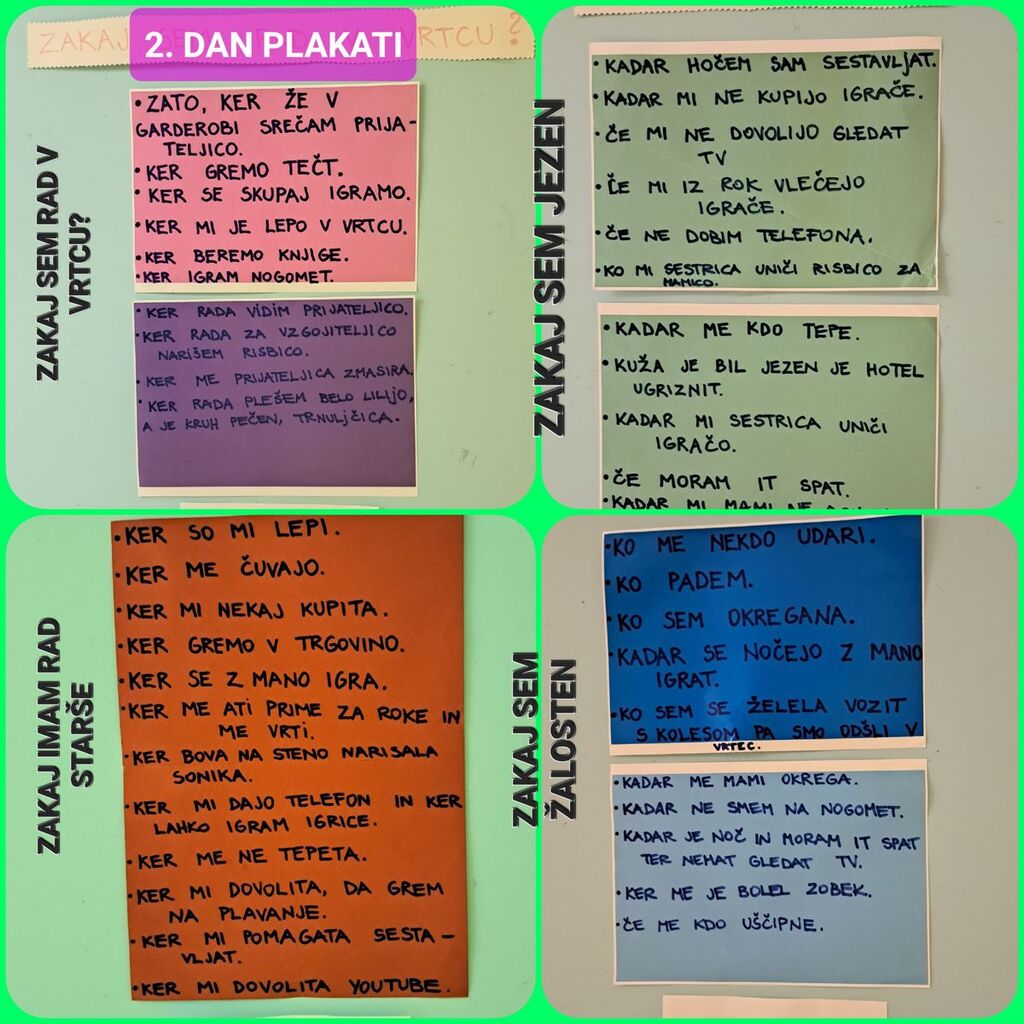 ZAKAJ
VRTCU?
2. DAN PLAKATI
ZAKAJ SEM RAD V
VRTCU?
• ZATO, KER ŽE V
GARDEROBI SREČAM PRIJA-
TELJICO.
• KER GREMO TEČT.
• KER SE SKUPAJ IGRAMO.
• KER MI JE LEPO V VRTCU.
• KER BEREMO KNJIGE.
• KER IGRAM NOGOMET.
• KER RADA VIDIM PRIJATELJICO.
• KER RADA ZA VZGOJITELJICO
NARIŠEM RISBICO.
• KER ME PRIJATELJICA ZMASIRA.
• KER RADA PLEŠEM BELO LILIJO,
A JE KRUH PEČEN, TRNULJČICA.
ZAKAJ SEM JEZEN
• KADAR HOČEM SAM SESTAVLJAT.
• KADAR MI NE KUPIJO IGRAČE.
• ČE MI NE DOVOLIJO GLEDAT
TV
• ČE MI IZ ROK VLEČEJO
IGRAČE.
• ČE NE DOBIM TELEFONA.
• KO MI SESTRICA UNIČI RISBICO ZA
MAMICO.
• KADAR ME KDO TEPE.
• KUŽA JE BIL JEZEN JE HOTEL
UGRIZNIT.
• KADAR MI SESTRICA UNIČI
IGRAČO.
• ČE MORAM IT SPAT.
• KADAR MI MAMI NE
ZAKAJ IMAM RAD
STARŠE
• KER SO MI LEPI.
• KER ME ČUVAJO.
• KER MI NEKAJ KUPITA.
• KER GREMO V TRGOVINO.
• KER SE Z MANO IGRA.
• KER ME ATI PRIME ZA ROKE IN
ME VRTI.
• KER BOVA NA STENO NARISALA
SONIKA.
• KER MI DAJO TELEFON IN KER
LAHKO IGRAM IGRICE.
• KER ME NE TEPETA.
• KER MI DOVOLITA, DA GREM
NA PLAVANJE.
• KER MI POMAGATA SESTA-
VLJAT.
• KER MI DOVOLITA YOUTUBE.
ZAKAJ SEM
ŽALOSTEN
• KO ME NEKDO UDARI.
• KO PADEM.
• KO SEM OKREGANA.
• KADAR SE NOČEJO Z MANO
IGRAT.
• KO SEM SE ŽELELA VOZIT
S KOLESOM PA SMO ODŠLI V
VRTEC.
• KADAR ME MAMI OKREGA.
• KADAR NE SMEM NA NOGOMET.
• KADAR JE NOČ IN MORAM IT SPAT
TER NEHAT GLEDAT TV.
• KER ME JE BOLEL ZOBEK.
• ČE ME KDO UŠČIPNE.